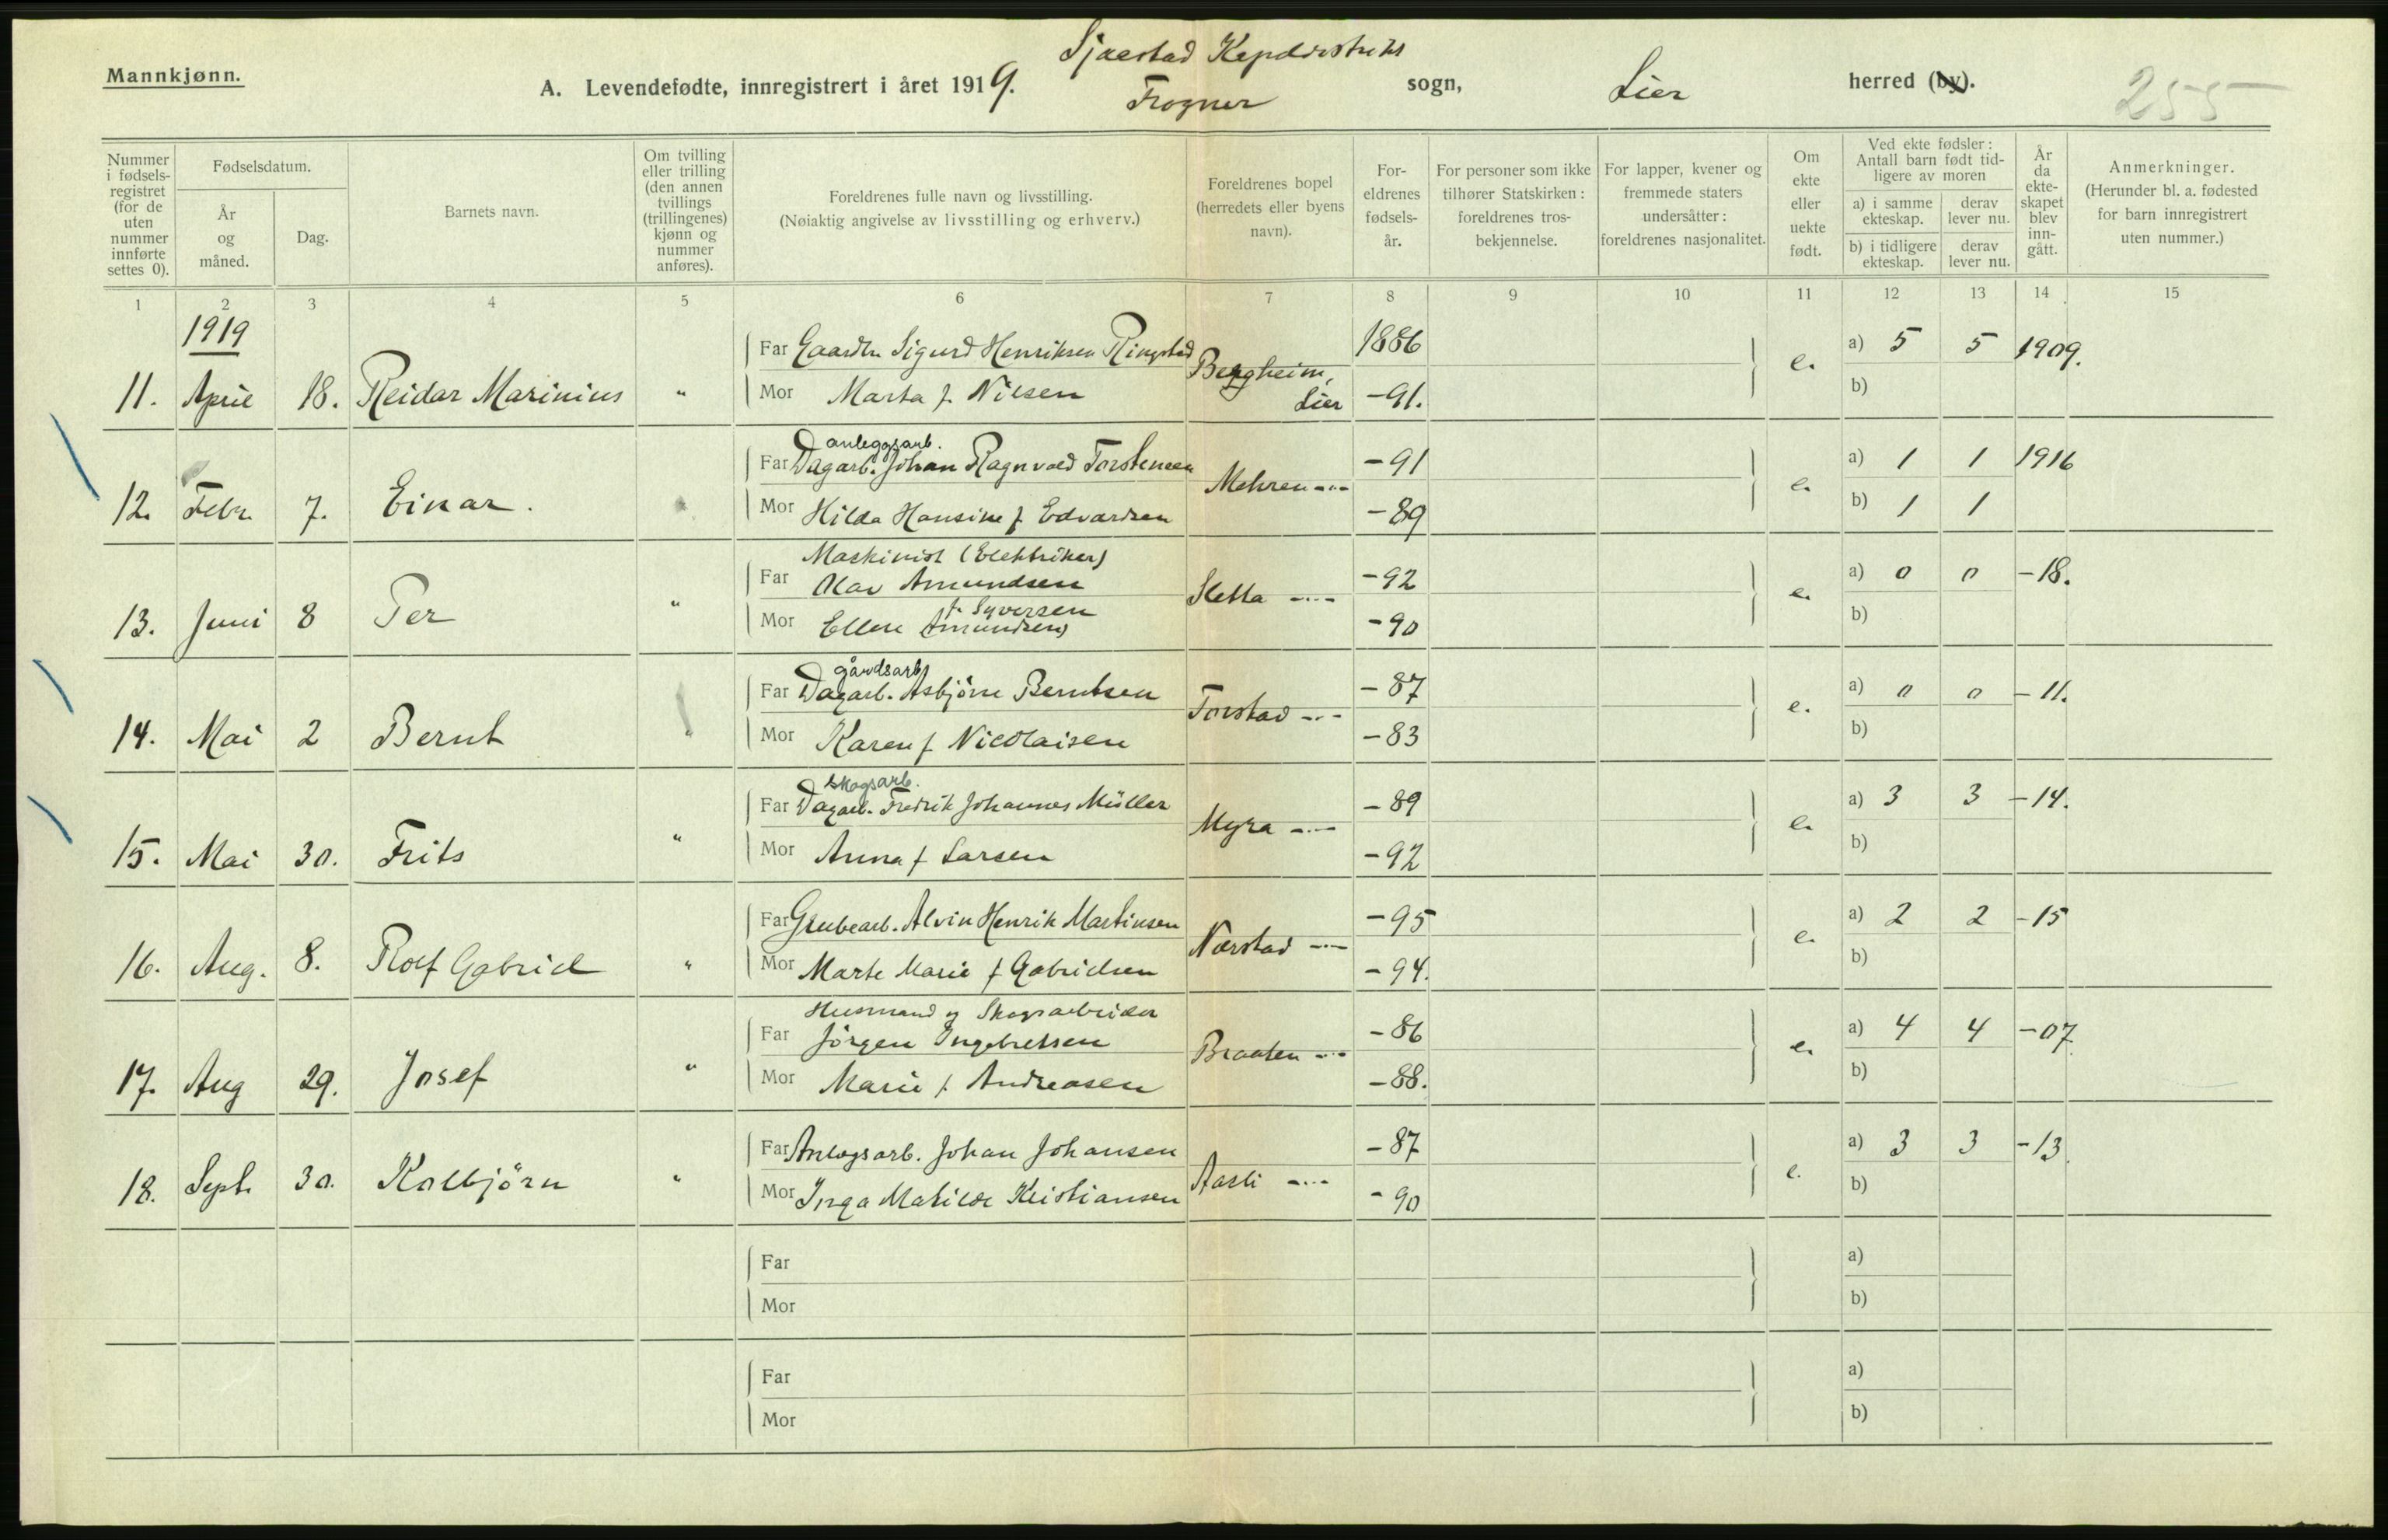 Mannkjønn.
A. Levendefødte, innregistrert i året 1919.
Sjaestad
Frogner
sogn,
Lier
herred (by).
255
Nummer i fødsels-registret (for de uten nummer innførte settes 0).
Fødselsdatum.
År og måned.
Dag.
Barnets navn.
Om tvilling eller trilling (den annen tvillings (trillingenes) kjønn og nummer anføres).
Foreldrenes fulle navn og livsstilling.
(Nøiaktig angivelse av livsstilling og erhverv.)
Foreldrenes bopel (herredets eller byens navn).
For-eldrenes fødsels-år.
For personer som ikke tilhører Statskirken: foreldrenes tros-bekjennelse.
For lapper, kvener og fremmede staters undersåtter: foreldrenes nasjonalitet.
Om ekte eller uekte født.
Ved ekte fødsler: Antall barn født tid-ligere av moren
a) i samme ekteskap.
derav lever nu.
b) i tidligere ekteskap.
derav lever nu.
År da ekte-skapet blev inn-gått.
Anmerkninger.
(Herunder bl. a. fødested for barn innregistrert uten nummer.)
1 2 3 4 5 6 7 8 9 10 11 12 13 14 15
1919
Far Gaardbr. Sigurd Henriksen Ringstad 1886 a) 5 5 1909.
11. April 18. Reidar Marinius " Bergheim, Lier e.
Mor Marta f. Nilsen -91. b)
anleggsarb.
Far Dagarb. Johan Ragnvald Torstensen -91 a) 1 1 1916
12. Febr. 7. Einar. " Mehren -"- e.
Mor Hilda Hansine f. Edvardsen -89 b) 1 1
Maskinist (Elektriker)
Far Olav Amundsen -92 a) 0 0 -18.
13. Juni 8 Per " Sletta -"- e.
f. Syversen
Mor Ellen (Amundsen) -90 b)
gårdsarb
Far Dagarb. Asbjörn Berntsen -87 a) 0 0 -11.
14. Mai 2 Bernt " Torstad -"- e.
Mor Karen f. Nicolaisen -83 b)
skogsarb.
Far Dagarb. Fredrik Johannes Müller -89 a) 3 3 -14.
15. Mai 30. Frits " Myra -"- e.
Mor Anna f Larsen -92 b)
Far Grubearb. Alvin Henrik Martinsen -95 a) 2 2 -15
16. Aug. 8. Rolf Gabriel " Nærstad -"- e.
Mor Marte Marie f Gabrielsen -94. b)
Husmand og Skogsarbeider
Far Jörgen Ingebretsen -86 a) 4 4 -07.
17. Aug 29. Josef " Braaten -"- e.
Mor Marie f. Andreasen -88. b)
Far Anlagsarb. Johan Johansen -87 a) 3 3 -13.
18. Sept. 30. Kolbjörn " Aasli -"- e.
Mor Inga Matilde Kristiansen -90 b)
Far a)
Mor b)
Far a)
Mor b)